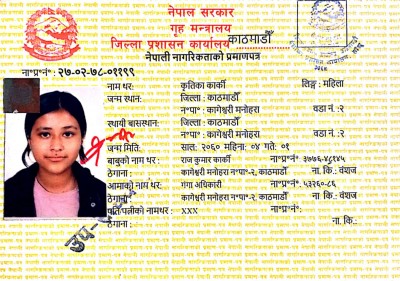 नेपाल सरकार
गृह मन्त्रालय
जिल्ला प्रशासन कार्यालय काठमाडौँ
नेपाली नागरिकताको प्रमाणपत्र
ना॰प्र॰नं॰: २७-०२-७८-०११९९
नाम थर: कृतिका कार्की लिङ्ग: महिला
जन्म स्थान: जिल्ला: काठमाडौँ
न॰पा॰: कागेश्वरी मनोहरा वडा नं.: २
स्थायी बासस्थान: जिल्ला: काठमाडौँ
न॰पा॰: कागेश्वरी मनोहरा वडा नं.: २
जन्म मिति: साल: २०६० महिना: ०४ गते: ०१
बाबुको नाम थर: राज कुमार कार्की ना॰प्र॰नं॰: ३७७६-४८१४५
ठेगाना: कागेश्वरी मनोहरा न॰पा॰-२, काठमाडौँ ना. कि.: वंशज
आमाको नाम थर: गंगा अधिकारी ना॰प्र॰नं॰: ५३२६०-८६
ठेगाना: कागेश्वरी मनोहरा न॰पा॰-२, काठमाडौँ ना. कि.: वंशज
पति/पत्नीको नाम थर: XXX ना॰प्र॰नं॰:
ठेगाना: ना. कि.: